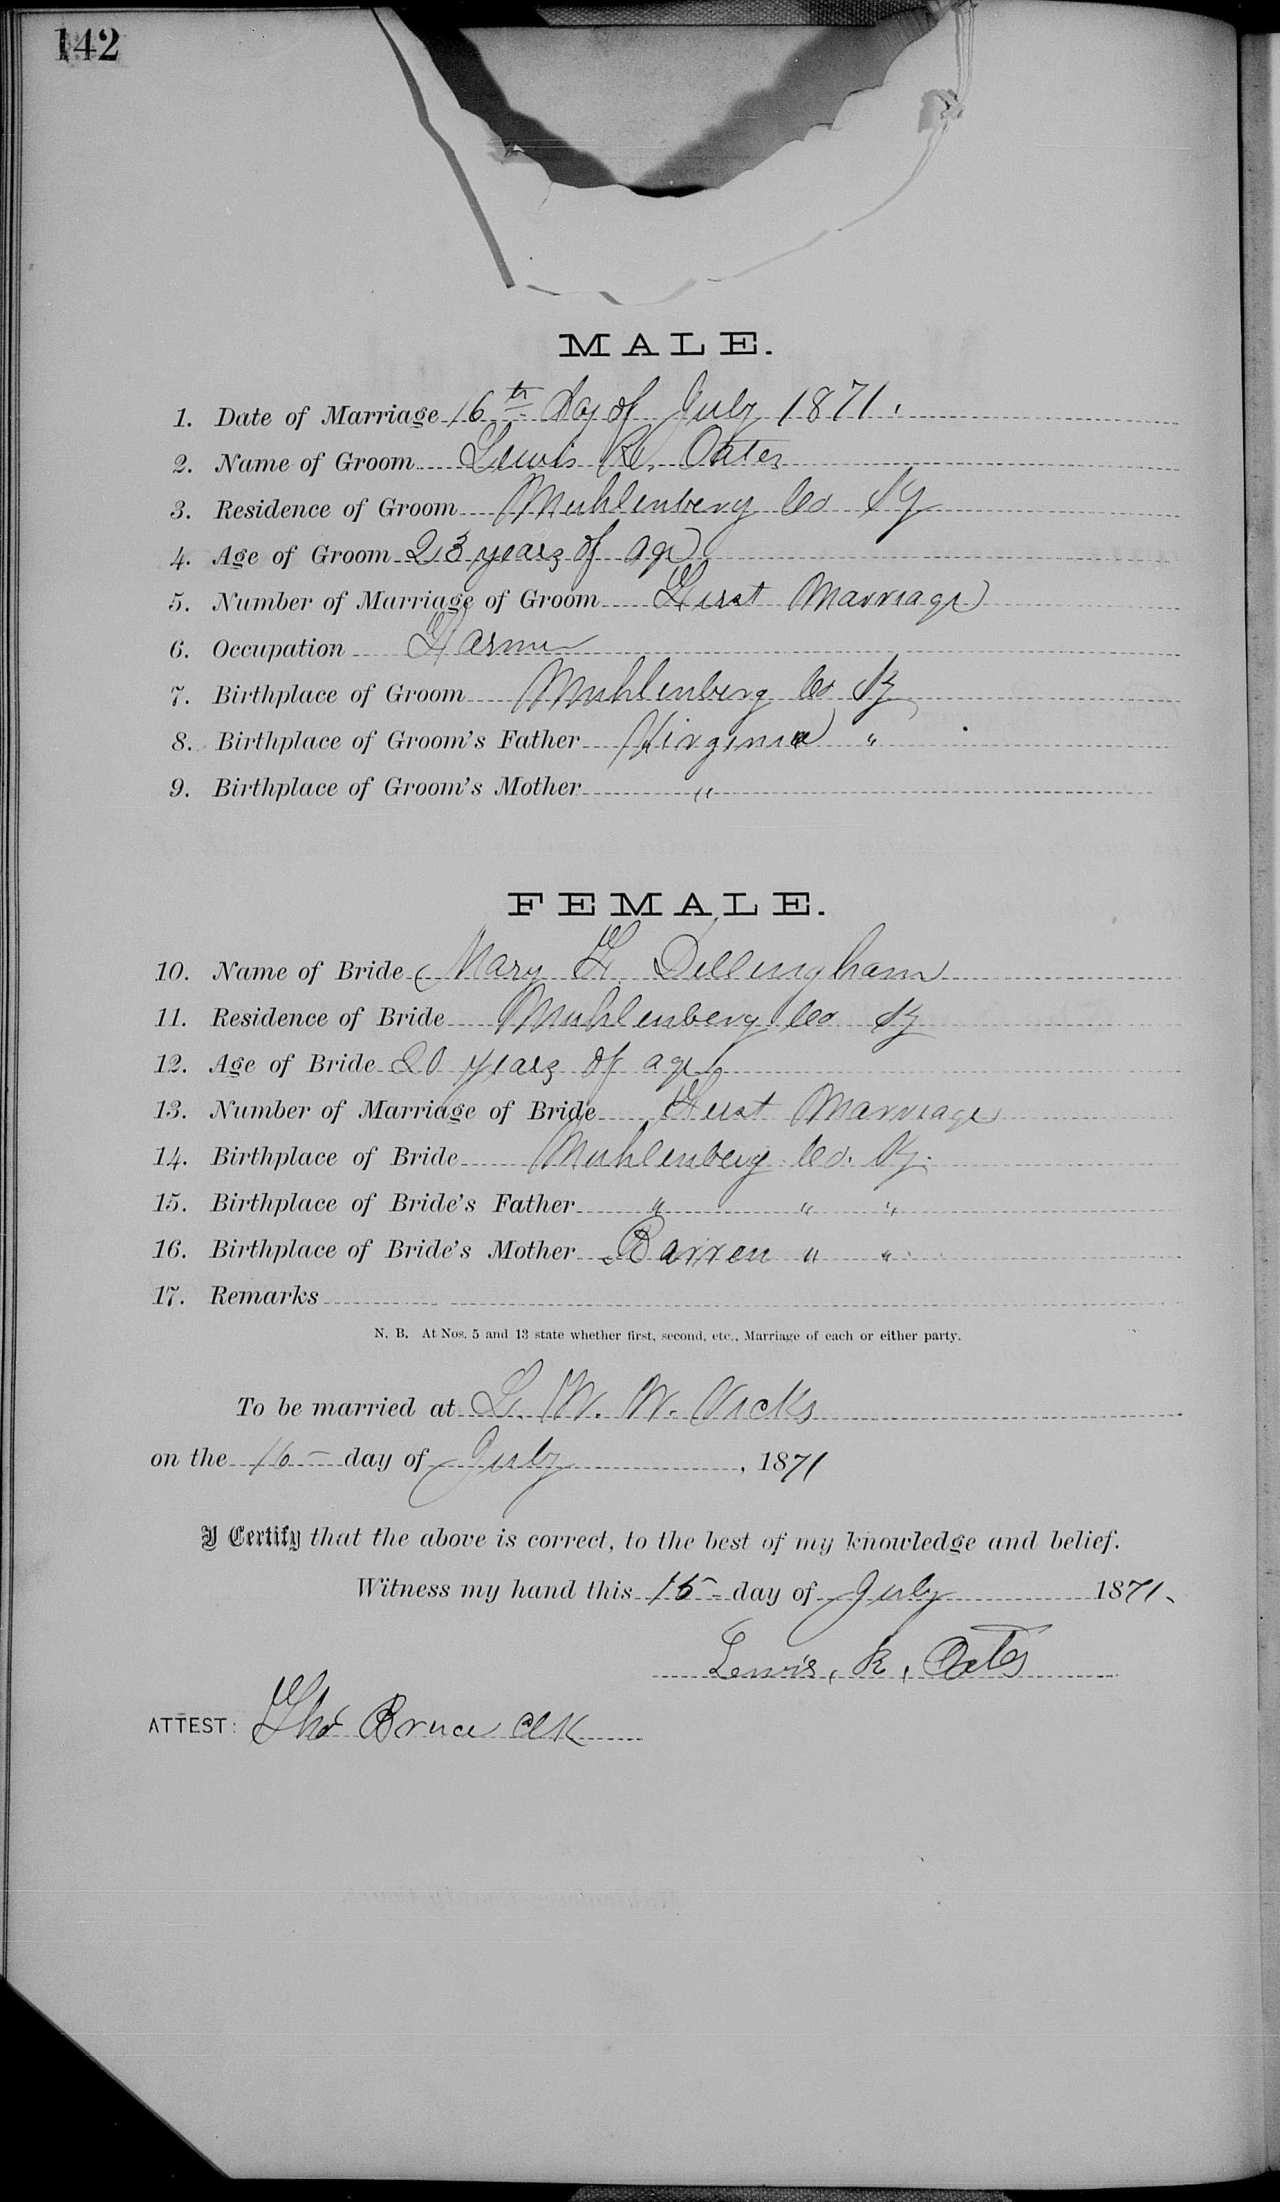 142
MALE.
1. Date of Marriage 16th day of July 1871.
2. Name of Groom Lewis R. Oates
3. Residence of Groom Muhlenberg Co Ky
4. Age of Groom 23 years of age
5. Number of Marriage of Groom First Marriage
6. Occupation Farmer
7. Birthplace of Groom Muhlenberg Co Ky
8. Birthplace of Groom's Father Virginia "
9. Birthplace of Groom's Mother "
FEMALE.
10. Name of Bride Mary F. Dillingham
11. Residence of Bride Muhlenberg Co Ky
12. Age of Bride 20 years of age
13. Number of Marriage of Bride First Marriage
14. Birthplace of Bride Muhlenberg Co. Ky.
15. Birthplace of Bride's Father " " "
16. Birthplace of Bride's Mother Barren " "
17. Remarks
N. B. At Nos. 5 and 13 state whether first, second, etc., Marriage of each or either party.
To be married at W. W.
on the 16 day of July, 1871
I Certify that the above is correct, to the best of my knowledge and belief.
Witness my hand this 15 day of July 1871.
Lewis, R, Oates
ATTEST: Tho Bruce Clk